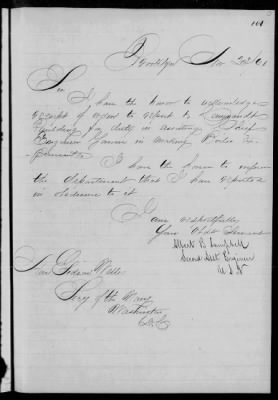 Brooklyn Nov 22d/61
Sir
I have the honor to acknowledge
receipt of orders to report to Commandt
for duty in assisting Chief
Engineer in
I have the honor to inform
the department that I have reported
in obedience to it
I am respectfully
Your Obdt Servant
Albert B. Campbell
Second Asst Engineer
U.S.N.
To
Hon Gideon Welles
Secy of the Navy
Washington
D.C.